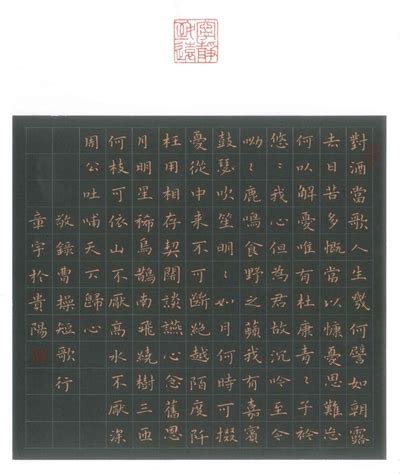 寧靜
致遠
對酒當歌人生幾何譬如朝露
去日苦多慨當以慷憂思難忘
何以解憂唯有杜康青〻子衿
悠〻我心但為君故沉吟至今
呦〻鹿鳴食野之蘋我有嘉賓
鼓瑟吹笙明〻如月何時可掇
憂從中來不可斷絕越陌度阡
枉用相存契闊談讌心念舊恩
月明星稀烏鵲南飛繞樹三匝
何枝可依山不厭高水不厭深
周公吐哺天下歸心
敬錄曹操短歌行
童宇於貴陽